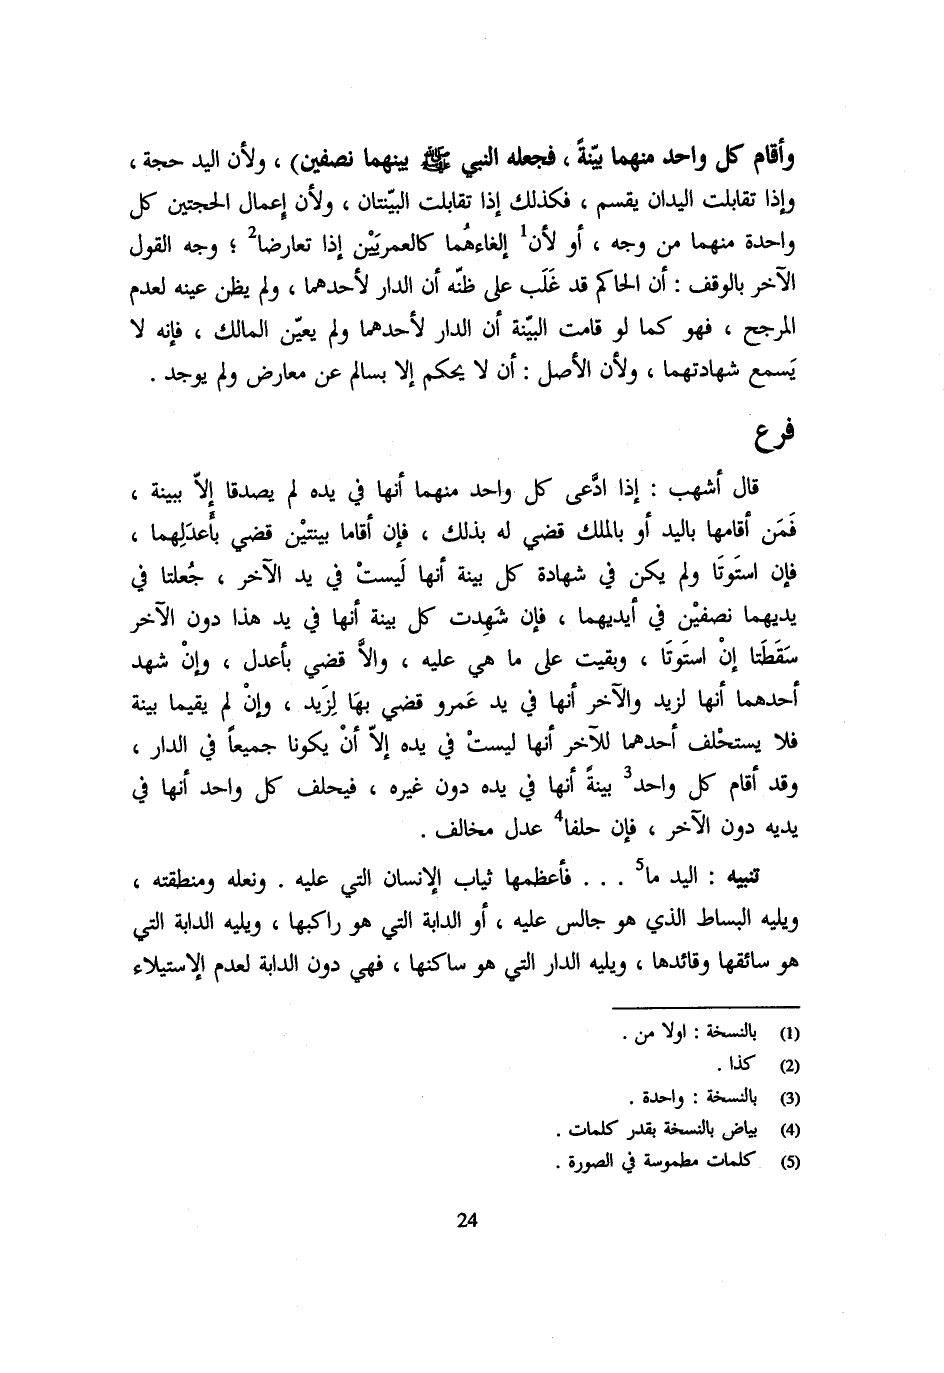 وأقام كل واحد منهما بيّنةً ، فجعله النبي ﷺ بينهما نصفين) ، ولأن اليد حجة ،
وإذا تقابلت اليدان يقسم ، فكذلك إذا تقابلت البيّنتان ، ولأن إعمال الحجتين كل
واحدة منهما من وجه ، أو لأن1 إلغاءهُما كالعمريَيْن إذا تعارضا2 ؛ وجه القول
الآخر بالوقف : أن الحاكم قد غَلَب على ظنّه أن الدار لأحدهما ، ولم يظن عينه لعدم
المرجح ، فهو كما لو قامت البيّنة أن الدار لأحدهما ولم يعيّن المالك ، فإنه لا
يَسمع شهادتهما ، ولأن الأصل : أن لا يحكم إلا بسالم عن معارض ولم يوجد .
فرع
قال أشهب : إذا ادَّعى كل واحد منهما أنها في يده لم يصدقا إلاّ ببينة ،
فَمَن أقامها باليد أو بالملك قضي له بذلك ، فإن أقاما بينتيْن قضي بأَعدَلِهما ،
فإن استَوتَا ولم يكن في شهادة كل بينة أنها لَيستْ في يد الآخر ، جُعلتا في
يديهما نصفيْن في أيديهما ، فإن شَهِدت كل بينة أنها في يد هذا دون الآخر
سَقَطَتا إنْ استَوتَا ، وبقيت على ما هي عليه ، والاَّ قضي بأعدل ، وإنْ شهد
أحدهما أنها لزيد والآخر أنها في يد عَمرو قضي بهَا لِزَيد ، وإنْ لم يقيما بينة
فلا يستحْلف أحدهما للآخر أنها ليستْ في يده إلاّ أنْ يكونا جميعاً في الدار ،
وقد أقام كل واحد3 بينةً أنها في يده دون غيره ، فيحلف كل واحد أنها في
يديه دون الآخر ، فإن حلفا4 عدل مخالف .
تنبيه : اليد ما5 . . . فأعظمها ثياب الإنسان التي عليه . ونعله ومنطقته ،
ويليه البساط الذي هو جالس عليه ، أو الدابة التي هو راكبها ، ويليه الدابة التي
هو سائقها وقائدها ، ويليه الدار التي هو ساكنها ، فهي دون الدابة لعدم الإستيلاء
(1) بالنسخة : اولا من .
(2) كذا .
(3) بالنسخة : واحدة .
(4) بياض بالنسخة بقدر كلمات .
(5) كلمات مطموسة في الصورة .
24